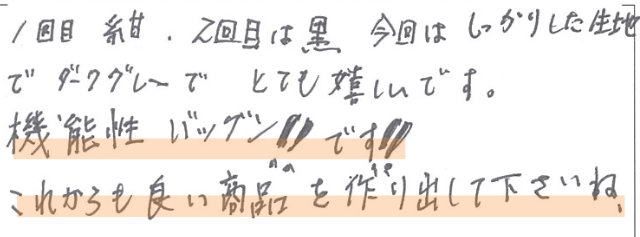 1回目 紺・2回目は黒 今回はしっかりした生地
で ダークグレーで とても嬉しいです。
機能性 バッグン!!です!!
これからも良い商品を作り出して下さいね、